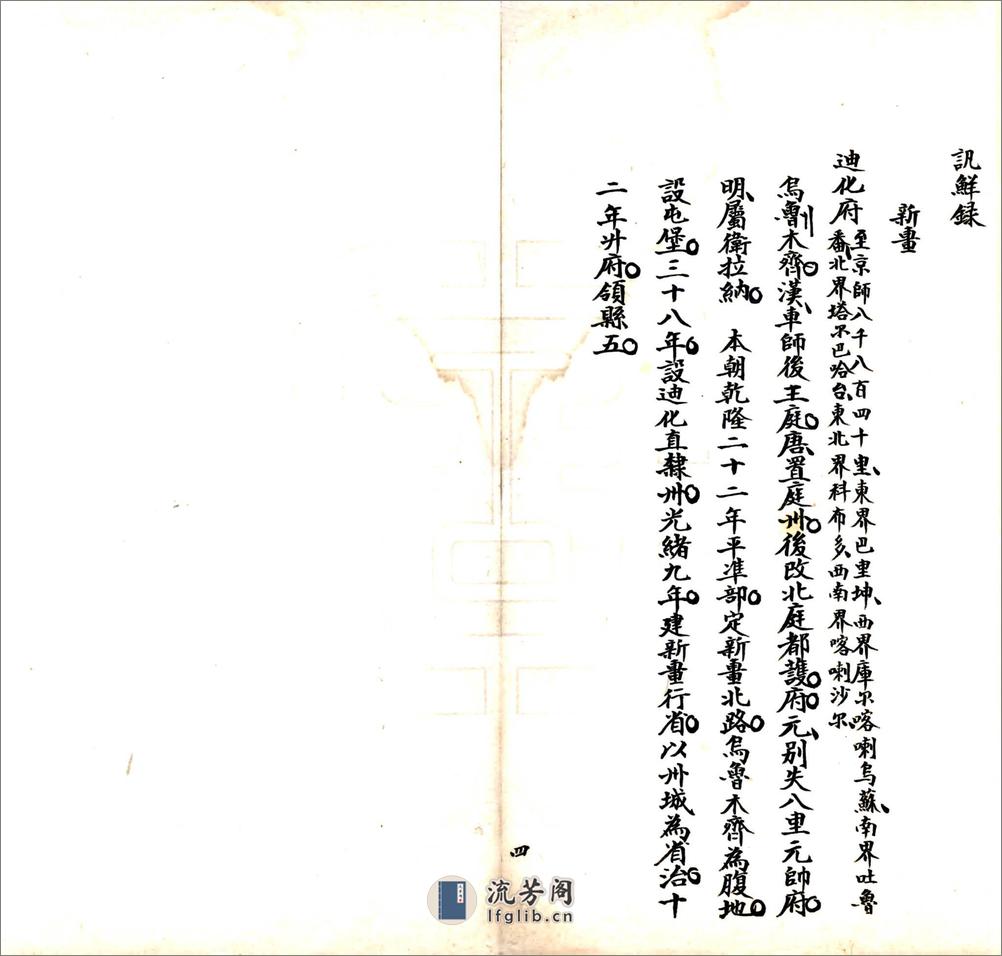 訊鮮録
新畺
迪化府 至京師八千八百四十里、東界巴里坤、西界庫尔喀喇烏蘇、南界吐魯
番、北界塔尔巴哈台、東北界科布多、西南界喀喇沙尔、
烏魯木齊。漢、車師後王庭。唐、置庭州。後改北庭都護府。元、别失八里元帥府。
明、屬衛拉納。 本朝乾隆二十二年平凖部。定新畺北路。烏魯木齊為腹地。
設屯堡。三十八年。設迪化直隸州。光緒九年。建新畺行省。以州城為省治。十
二年升府。領縣五。
四
流芳阁
lfglib.cn